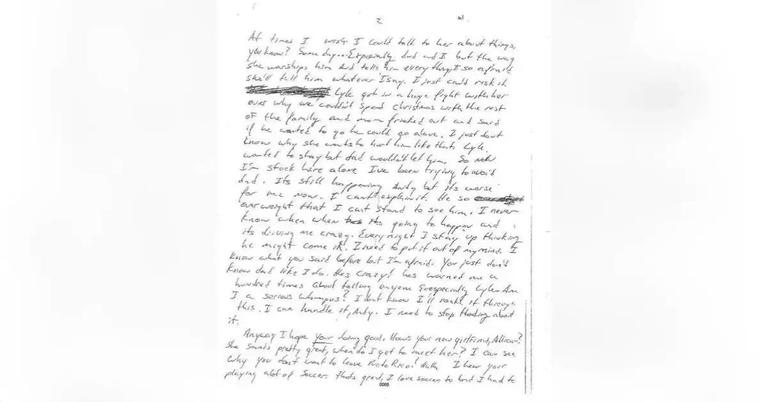 2
At times I wish I could talk to her about things,
you know? Some day... Especially dad and I but the way
she worships him and tells him everything I so afraid
she'll tell him whatever I say. I just can't risk it
Lyle got in a huge fight with her
over why we couldn't spend christmas with the rest
of the family and mom freaked out and said
if he wanted to go he could go alone. I just dont
know why she wants to hurt him like that. Lyle
wanted to stay but dad wouldn't let him. So now
I'm stuck here alone I've been trying to avoid
dad. Its still happening Andy but its worse
for me now. I can't explain it. He so
overweight that I cant stand to see him. I never
know when its going to happen and
its driving me crazy. Every night I stay up thinking
he might come in. I need to put it out of my mind. I
know what you said before but I'm afraid. You just don't
know dad like I do. Hes crazy! hes warned me a
hundred times about telling anyone especially Lyle. Am
I a serious whimpus? I dont know I'll make it through
this. I can handle it, Andy. I need to stop thinking about
it.
Anyway I hope your doing good. Hows your new girlfriend,
She sounds pretty great, when do I get to meet her? I can see
why you dont want to leave Puerto Rico! I hear your
playing alot of soccer. Thats great, I love soccer to but I had to